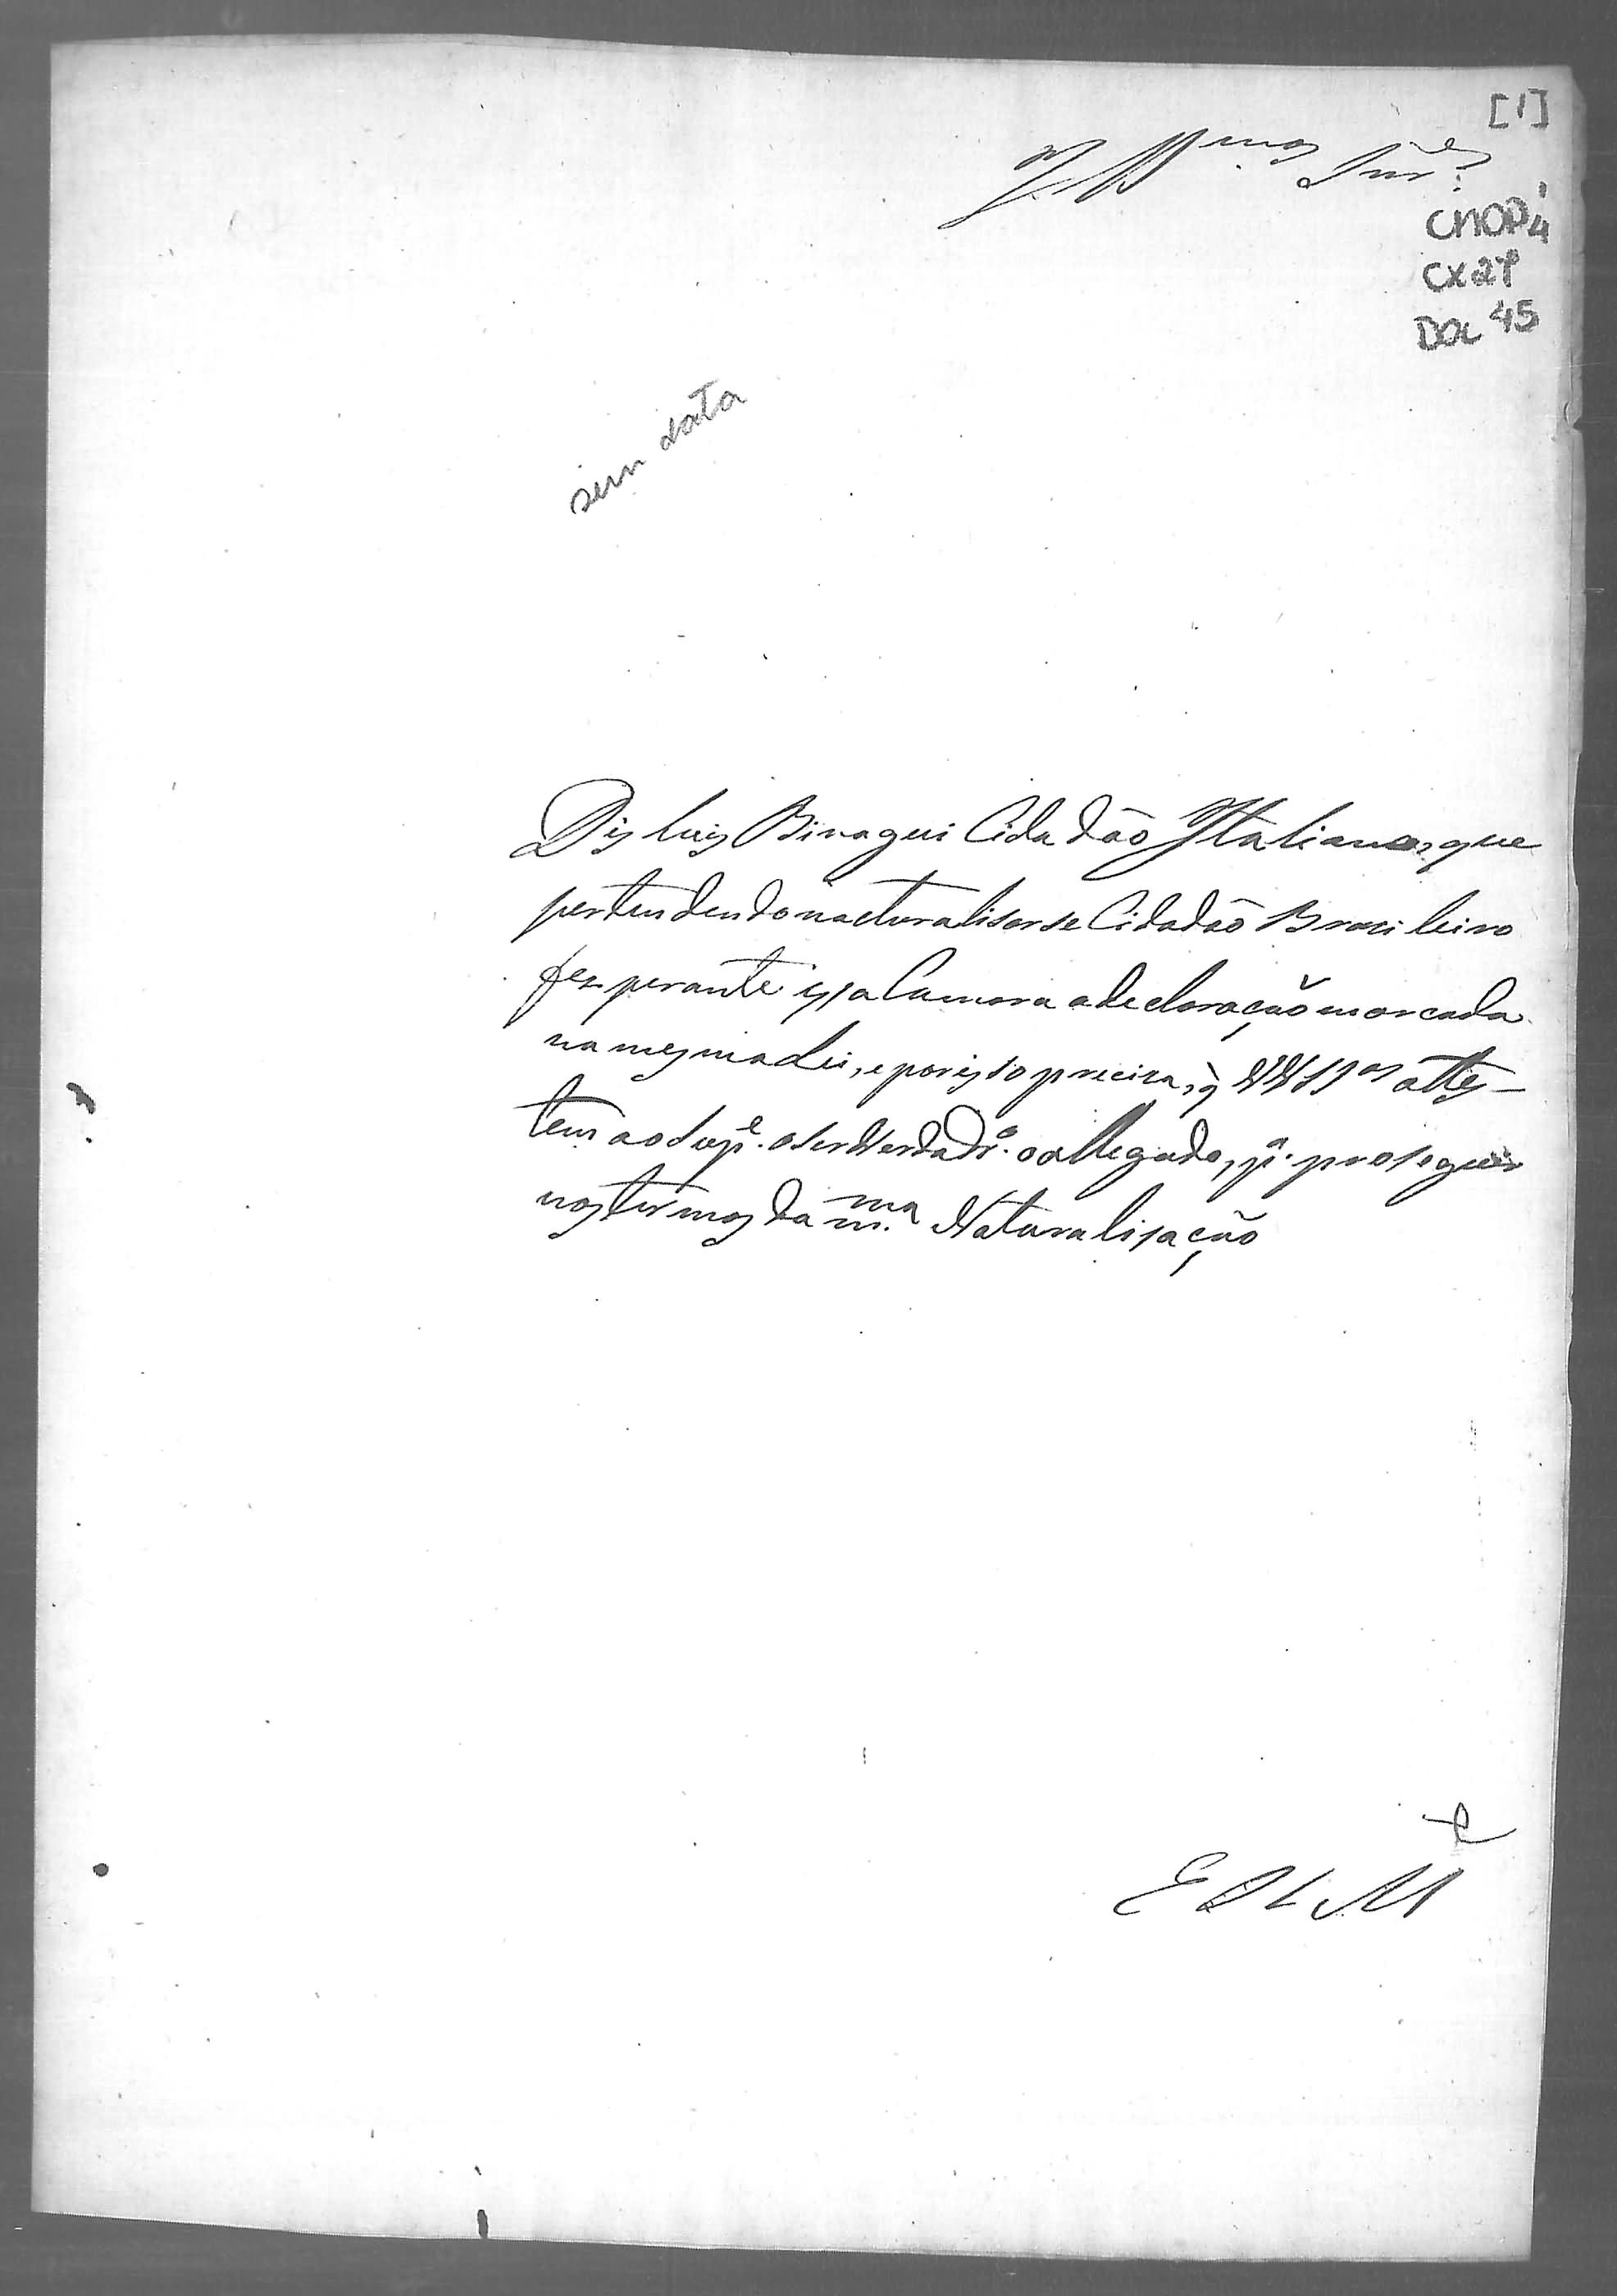 [1]
Illmos Snres
CMOP
CX 27
DOC 45
sem data
Dis Luis Binagui Cidadão Italiano, que
pertendendo nacturalisarse Cidadão Brasileiro
fes perante essa Camara a declaração marcada
na mesma Lei, e por isso preciza, q̀ VVSSas attes-
tem ao Supe. o ser Verdadro. o allegado, pa. proseguir
nos termos da mma. Naturalisação
E R Mce